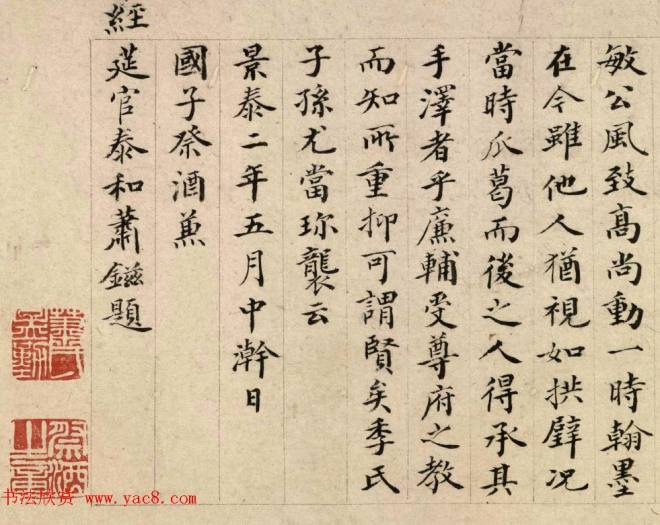 敏公風致高尚動一時翰墨
在今雖他人猶視如拱璧况
當時瓜葛而後之人得承其
手澤者乎廉輔受尊府之教
而知所重抑可謂賢矣季氏
子孫尤當珎襲云
景泰二年五月中澣日
國子祭酒兼
經筵官泰和蕭鎡題
祭酒之章
书法欣赏 www.yac8.com